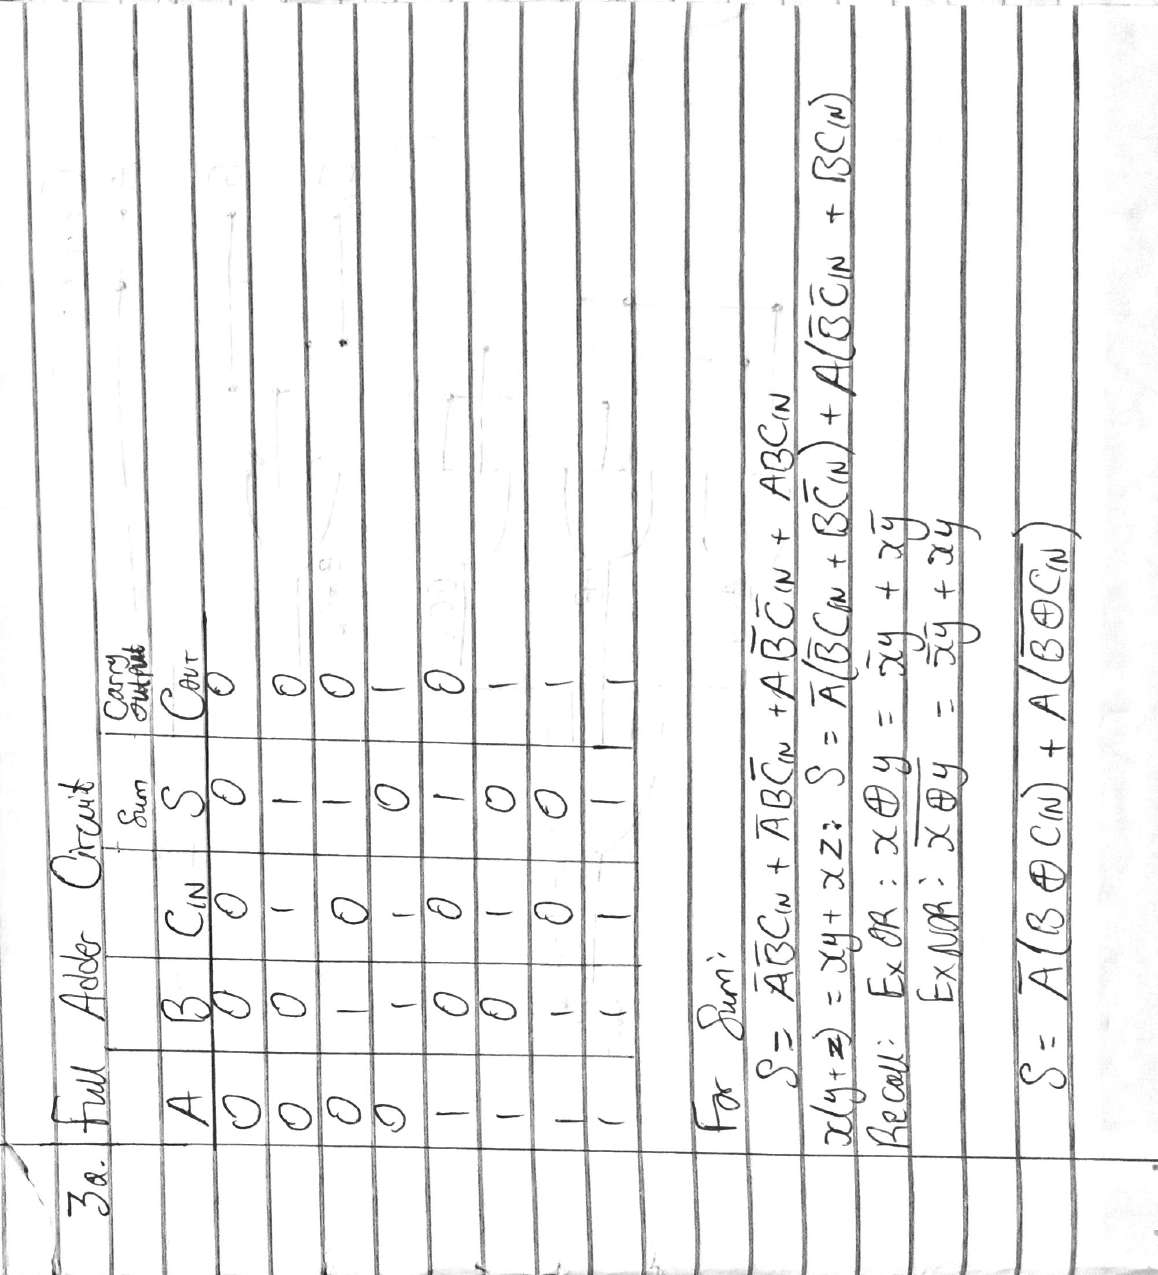 3a. Full Adder Circuit
Sum Carry output
A B CIN S COUT
0 0 0 0 0
0 0 1 1 0
0 1 0 1 0
0 1 1 0 1
1 0 0 1 0
1 0 1 0 1
1 1 0 0 1
1 1 1 1 1
For Sum:
S = A̅B̅CIN + A̅BC̅IN + AB̅C̅IN + ABCIN
x(y+z) = xy + xz: S = A̅(B̅CIN + BC̅IN) + A(B̅C̅IN + BCIN)
Recall: Ex OR : x⊕y = x̅y + xy̅
Ex NOR: x̅⊕̅y̅ = x̅y̅ + xy
S = A̅(B⊕CIN) + A(B̅⊕̅C̅I̅N̅)